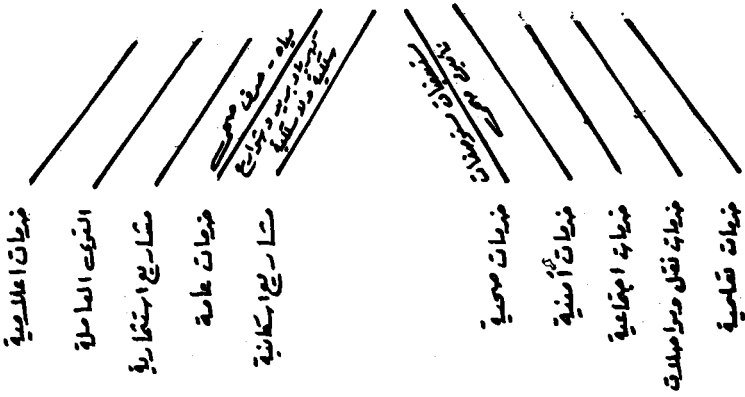 خدمات تعليمية
خدمات نقل ومواصلات
خدمات اجتماعية
خدمات أمنية
خدمات صحية
مستشفيات مستوصفات
تأمين صحى
مشاريع اسكانية
خدمات عامة
مياه - صرف صحى
كهرباء بريد وشوارع
سلكية ولاسلكية
مشاريع استثمارية
القوى العاملة
خدمات اعلامية